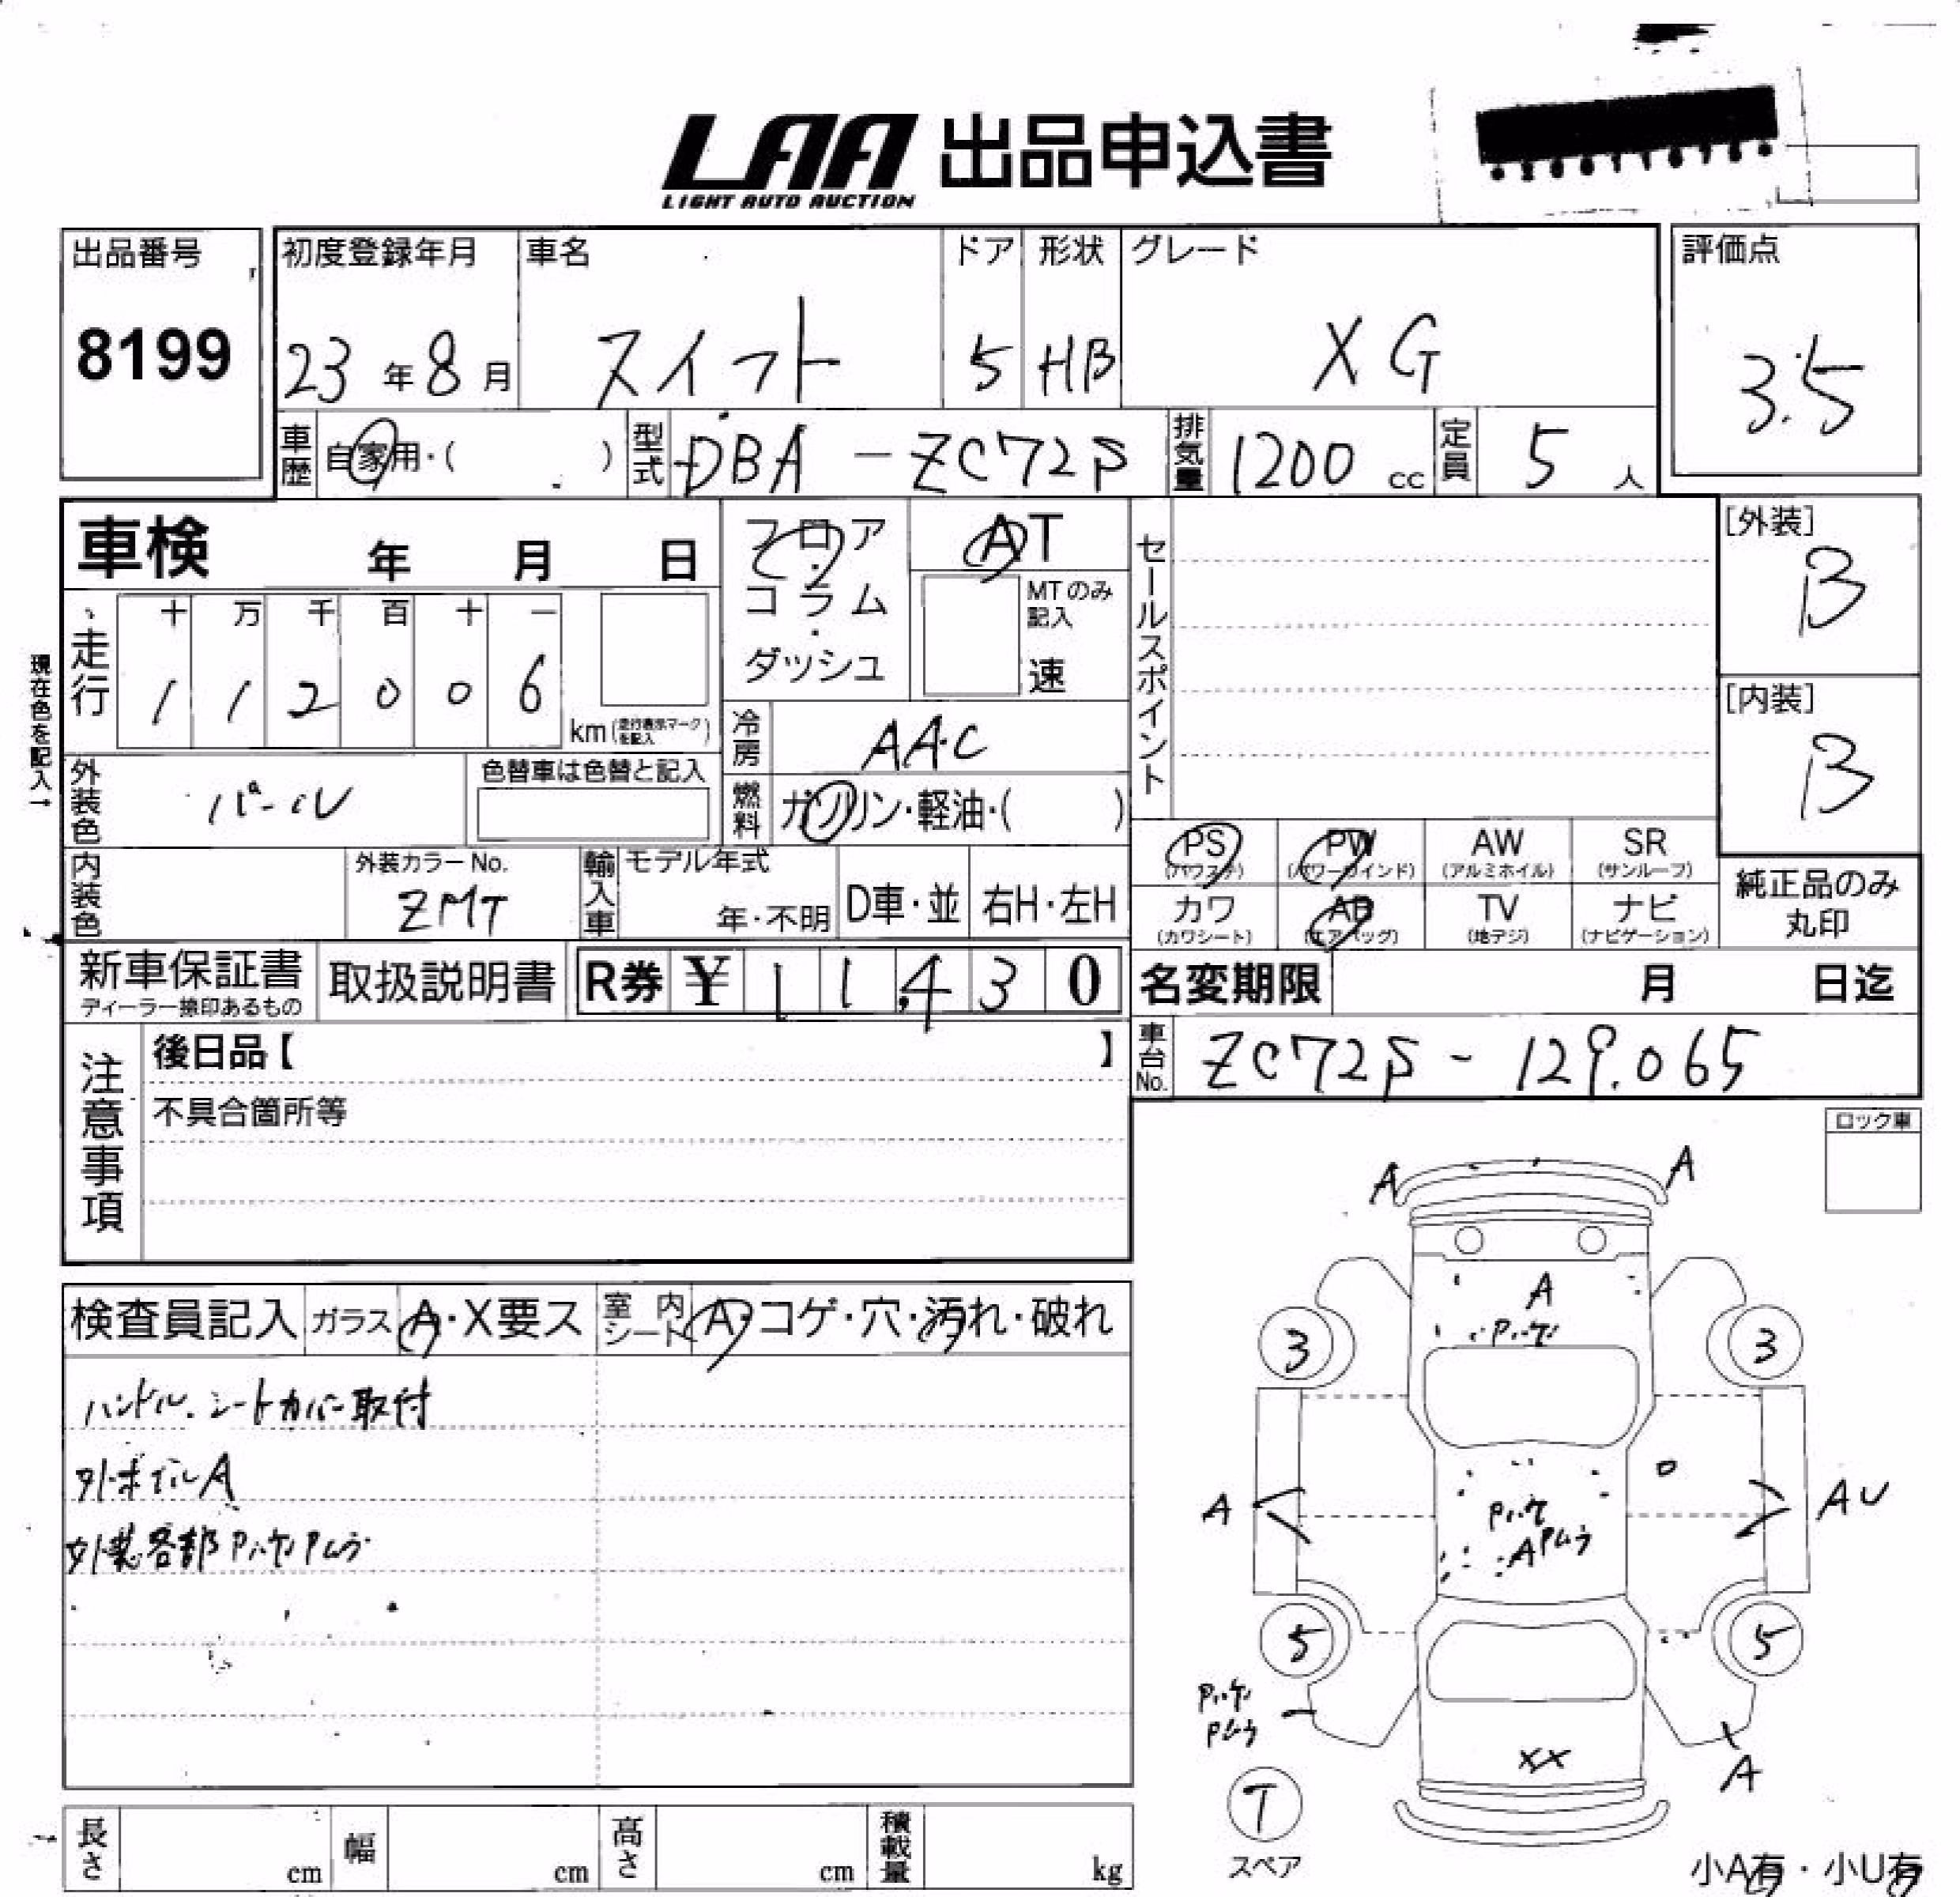 LAA 出品申込書
LIGHT AUTO AUCTION
出品番号
8199
初度登録年月
23年8月
車名
スイフト
ドア
5
形状
HB
グレード
XG
評価点
3.5
車歴 自家用・( )
型式 DBA-ZC72S
排気量 1200 cc
定員 5 人
車検 年 月 日
フロア・コラム・ダッシュ
AT
MTのみ記入
速
セールスポイント
[外装]
B
[内装]
B
現在色を記入→
走行
十 万 千 百 十 一
1 1 2 0 0 6
km(走行表示マークを記入)
冷房 AAC
外装色 パール
色替車は色替と記入
燃料 ガソリン・軽油・( )
内装色
外装カラーNo.
ZMT
輸入車
モデル年式
年・不明
D車・並
右H・左H
PS (パワステ)
PW (パワーウインド)
AW (アルミホイル)
SR (サンルーフ)
カワ (カワシート)
AB (エアバッグ)
TV (地デジ)
ナビ (ナビゲーション)
純正品のみ丸印
新車保証書
ディーラー捺印あるもの
取扱説明書
R券 ¥ 11,430
名変期限 月 日迄
車台No. ZC72S-129065
注意事項
後日品【 】
不具合箇所等
ロック車
検査員記入
ガラス A・X要ス
室内シート A・コゲ・穴・汚れ・破れ
ハンドル、シートカバー取付
外装各部Pハゲ Pムラ
A A
A
Pハゲ
3 3
A
Pハゲ
A Pムラ
AU
5 5
Pハゲ
Pムラ
XX
A
T
スペア
小A有・小U有
長さ cm
幅 cm
高さ cm
積載量 kg